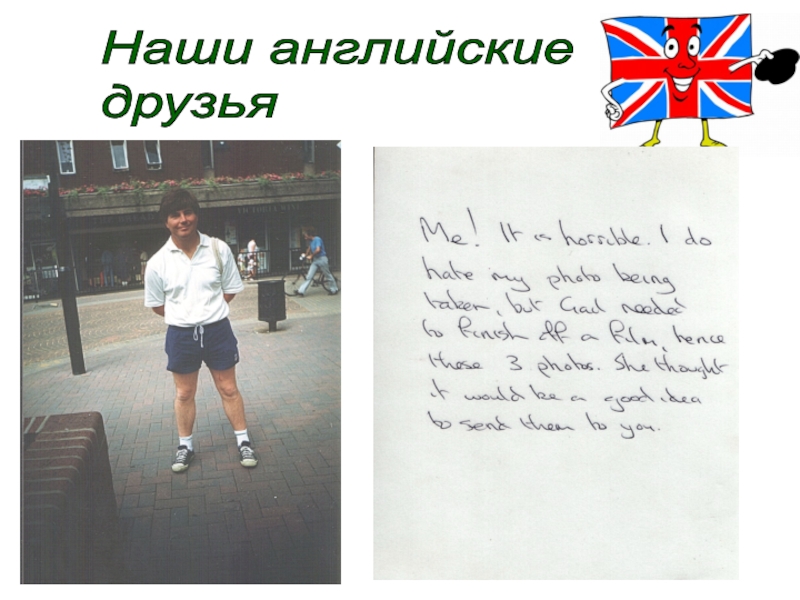 Наши английские
друзья
Me! It is horrible. I do
hate my photo being
taken, but Gail needed
to finish off a film, hence
these 3 photos. She thought
it would be a good idea
to send them to you.